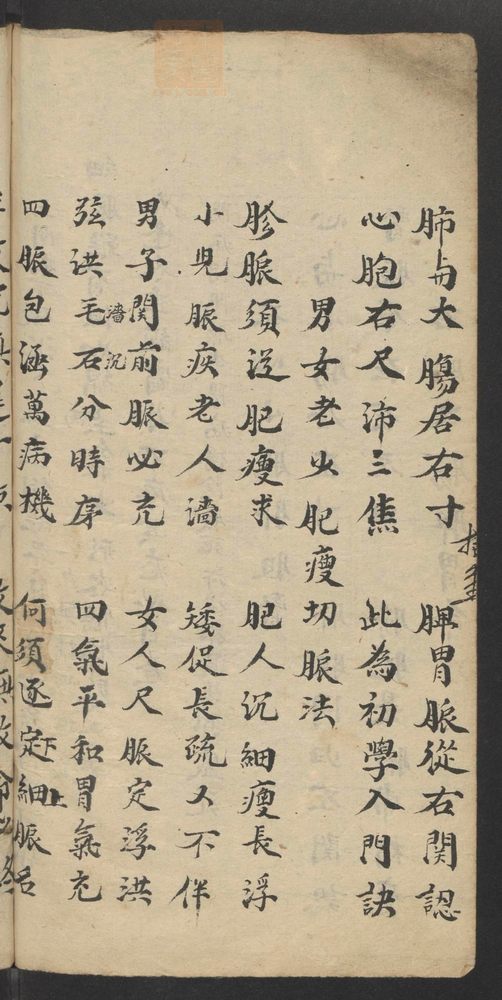 肺與大腸居右寸 脾胃脈從右関認
心胞右尺沛三焦 此為初學入門訣
男女老少肥瘦切脈法
胗脈須從肥瘦求 肥人沉細瘦長浮
小児脈疾老人濇 矮促長疏又不伴
男子関前脈必充 女人尺脈定浮洪
弦洪毛石分時序 四氣平和胃氣充
濇沉
四脈包涵萬病機 何須逐定細脈名
下上